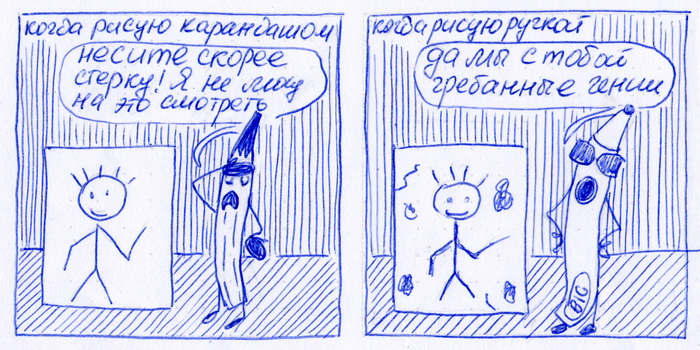 когда рисую карандашом
несите скорее
стерку! Я не могу
на это смотреть
когда рисую ручкой
да мы с тобой
гребанные гении
BIC